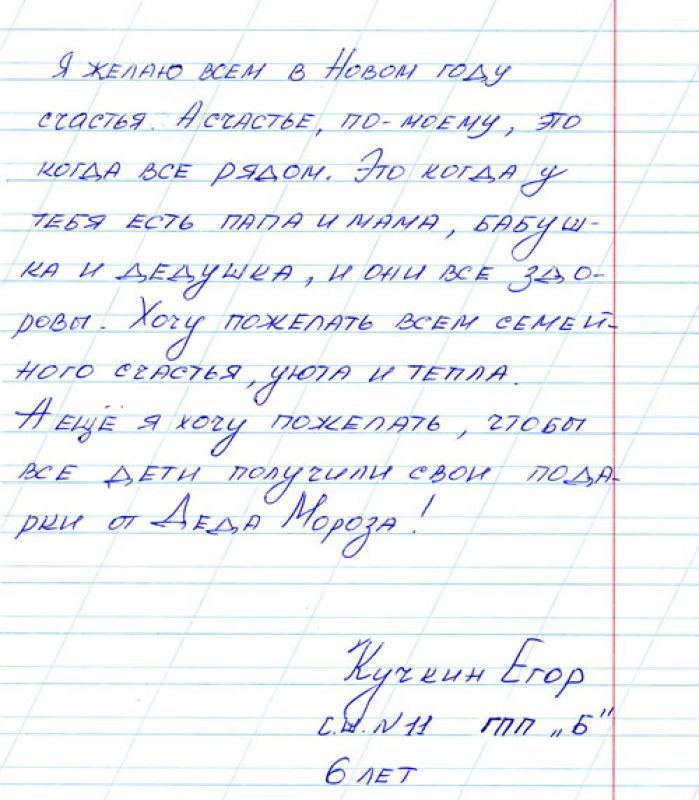 Я желаю всем в Новом году
счастья. А счастье, по-моему, это
когда все рядом. Это когда у
тебя есть папа и мама, бабуш-
ка и дедушка, и они все здо-
ровы. Хочу пожелать всем семей-
ного счастья, уюта и тепла.
А ещё я хочу пожелать, чтобы
все дети получили свои пода-
рки от Деда Мороза!
Кучкин Егор
с.ш. N 11 ГПП „Б"
6 лет